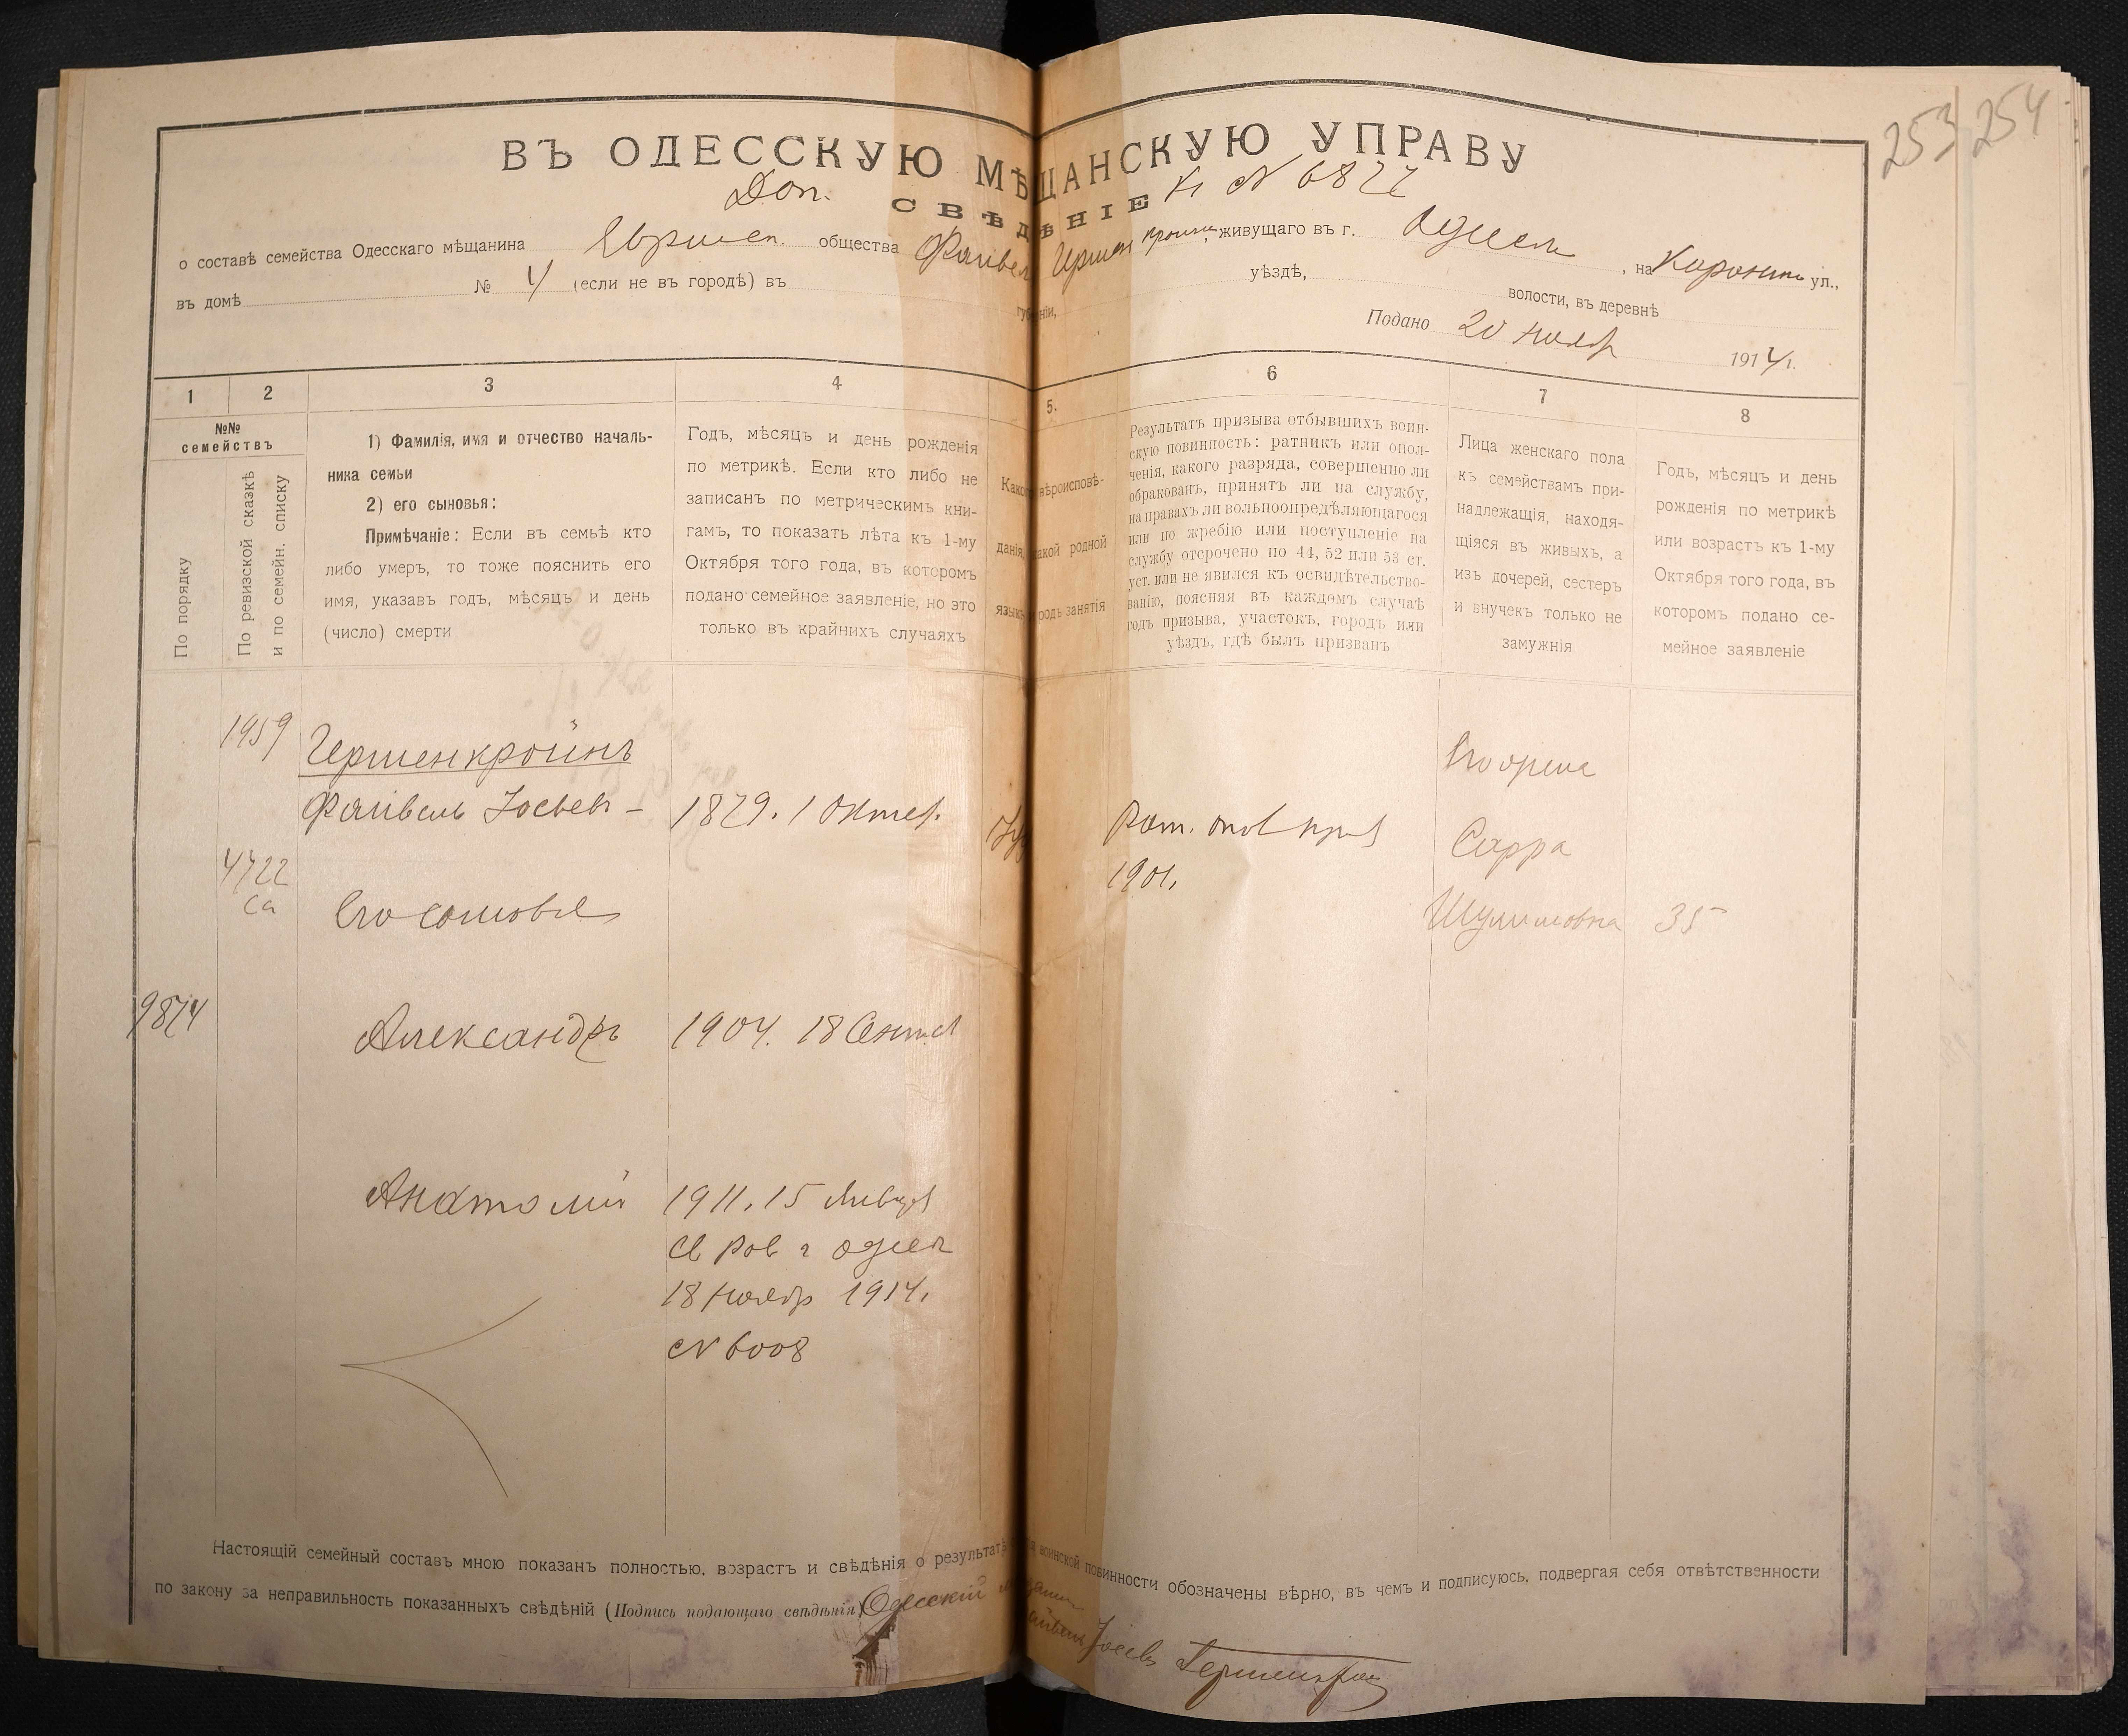 253 254
ВЪ ОДЕССКУЮ МѢЩАНСКУЮ УПРАВУ
Доп. СВѢДѢНІЕ К № 6822
о составѣ семейства Одесскаго мѣщанина общества Файвел живущаго въ г. , на ул.,
въ домѣ № 4 (если не въ городѣ) въ губерніи, уѣздѣ, волости, въ деревнѣ
Подано 20 Нояб 1914 г.
1 2 3 4 5. 6 7 8
№№
семействъ
По порядку
По ревизской сказкѣ
и по семейн. списку
1) Фамилія, имя и отчество началь-
ника семьи
2) его сыновья:
Примѣчаніе: Если въ семьѣ кто
либо умеръ, то тоже пояснить его
имя, указавъ годъ, мѣсяцъ и день
(число) смерти
Годъ, мѣсяцъ и день рожденія
по метрикѣ. Если кто либо не
записанъ по метрическимъ кни-
гамъ, то показать лѣта къ 1-му
Октября того года, въ которомъ
подано семейное заявленіе, но это
только въ крайнихъ случаяхъ
Какого вѣроисповѣ-
данія, какой родной
языкъ родъ занятія
Результатъ призыва отбывшихъ воин-
скую повинность: ратникъ или опол-
ченія, какого разряда, совершенно ли
обракованъ, принятъ ли на службу,
на правахъ ли вольноопредѣляющагося
или по жребію или поступленіе на
службу отсрочено по 44, 52 или 53 ст.
уст. или не явился къ освидѣтельство-
ванію, поясняя въ каждомъ случаѣ
годъ призыва, участокъ, городъ или
уѣздъ, гдѣ былъ призванъ
Лица женскаго пола
къ семействамъ при-
надлежащія, находя-
щіяся въ живыхъ, а
изъ дочерей, сестеръ
и внучекъ только не
замужнія
Годъ, мѣсяцъ и день
рожденія по метрикѣ
или возрастъ къ 1-му
Октября того года, въ
которомъ подано се-
мейное заявленіе
1959 Гершенкройнъ
Файвель Іосьев – 1879. 1 Октяб. Рат. опол приз
1901.
4722
Са
Его сыновья
Его жена
Сарра
Шулимовна 35
9874 Александръ 1904. 18 Сентяб
Анатолій 1911. 15 Январ
Св Рав г Одесс
18 Нояб 1914.
№ 6008
Настоящій семейный составъ мною показанъ полностью, возрастъ и свѣдѣнія о результатѣ воинской повинности обозначены вѣрно, въ чемъ и подписуюсь, подвергая себя отвѣтственности
по закону за неправильность показанныхъ свѣдѣній (Подпись подающаго свѣдѣнія) Одесскій мѣщанин
Файвель Іосев Гершенкройн